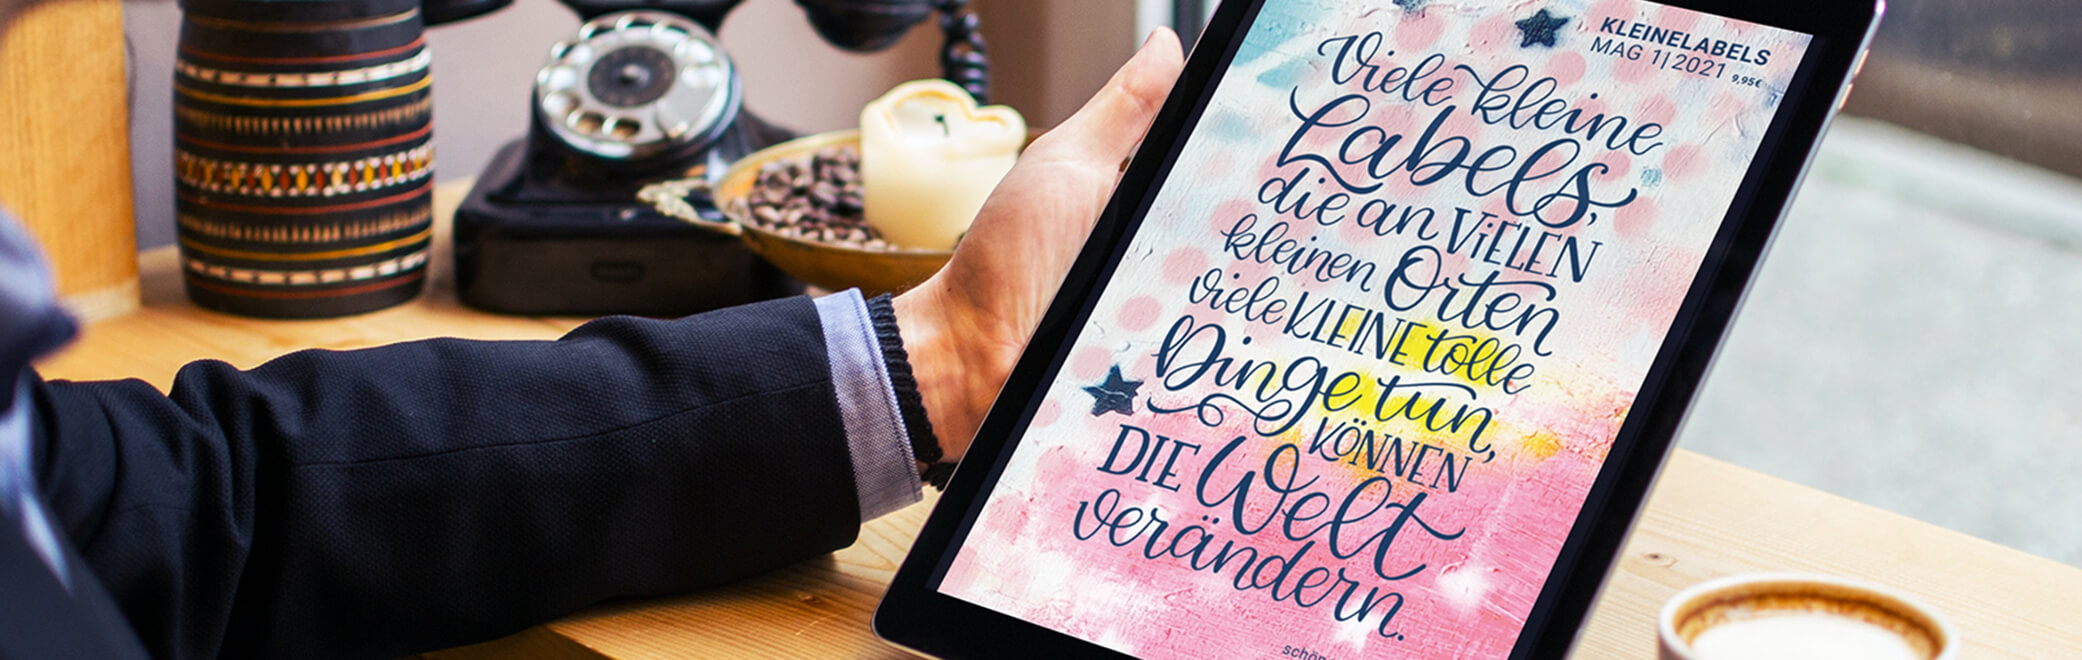 KLEINELABELS
MAG 1|2021 9,95€
Viele kleine
Labels,
die an ViELEN
kleinen Orten
viele KLEINE tolle
Dinge tun,
KÖNNEN
DIE Welt
verändern.